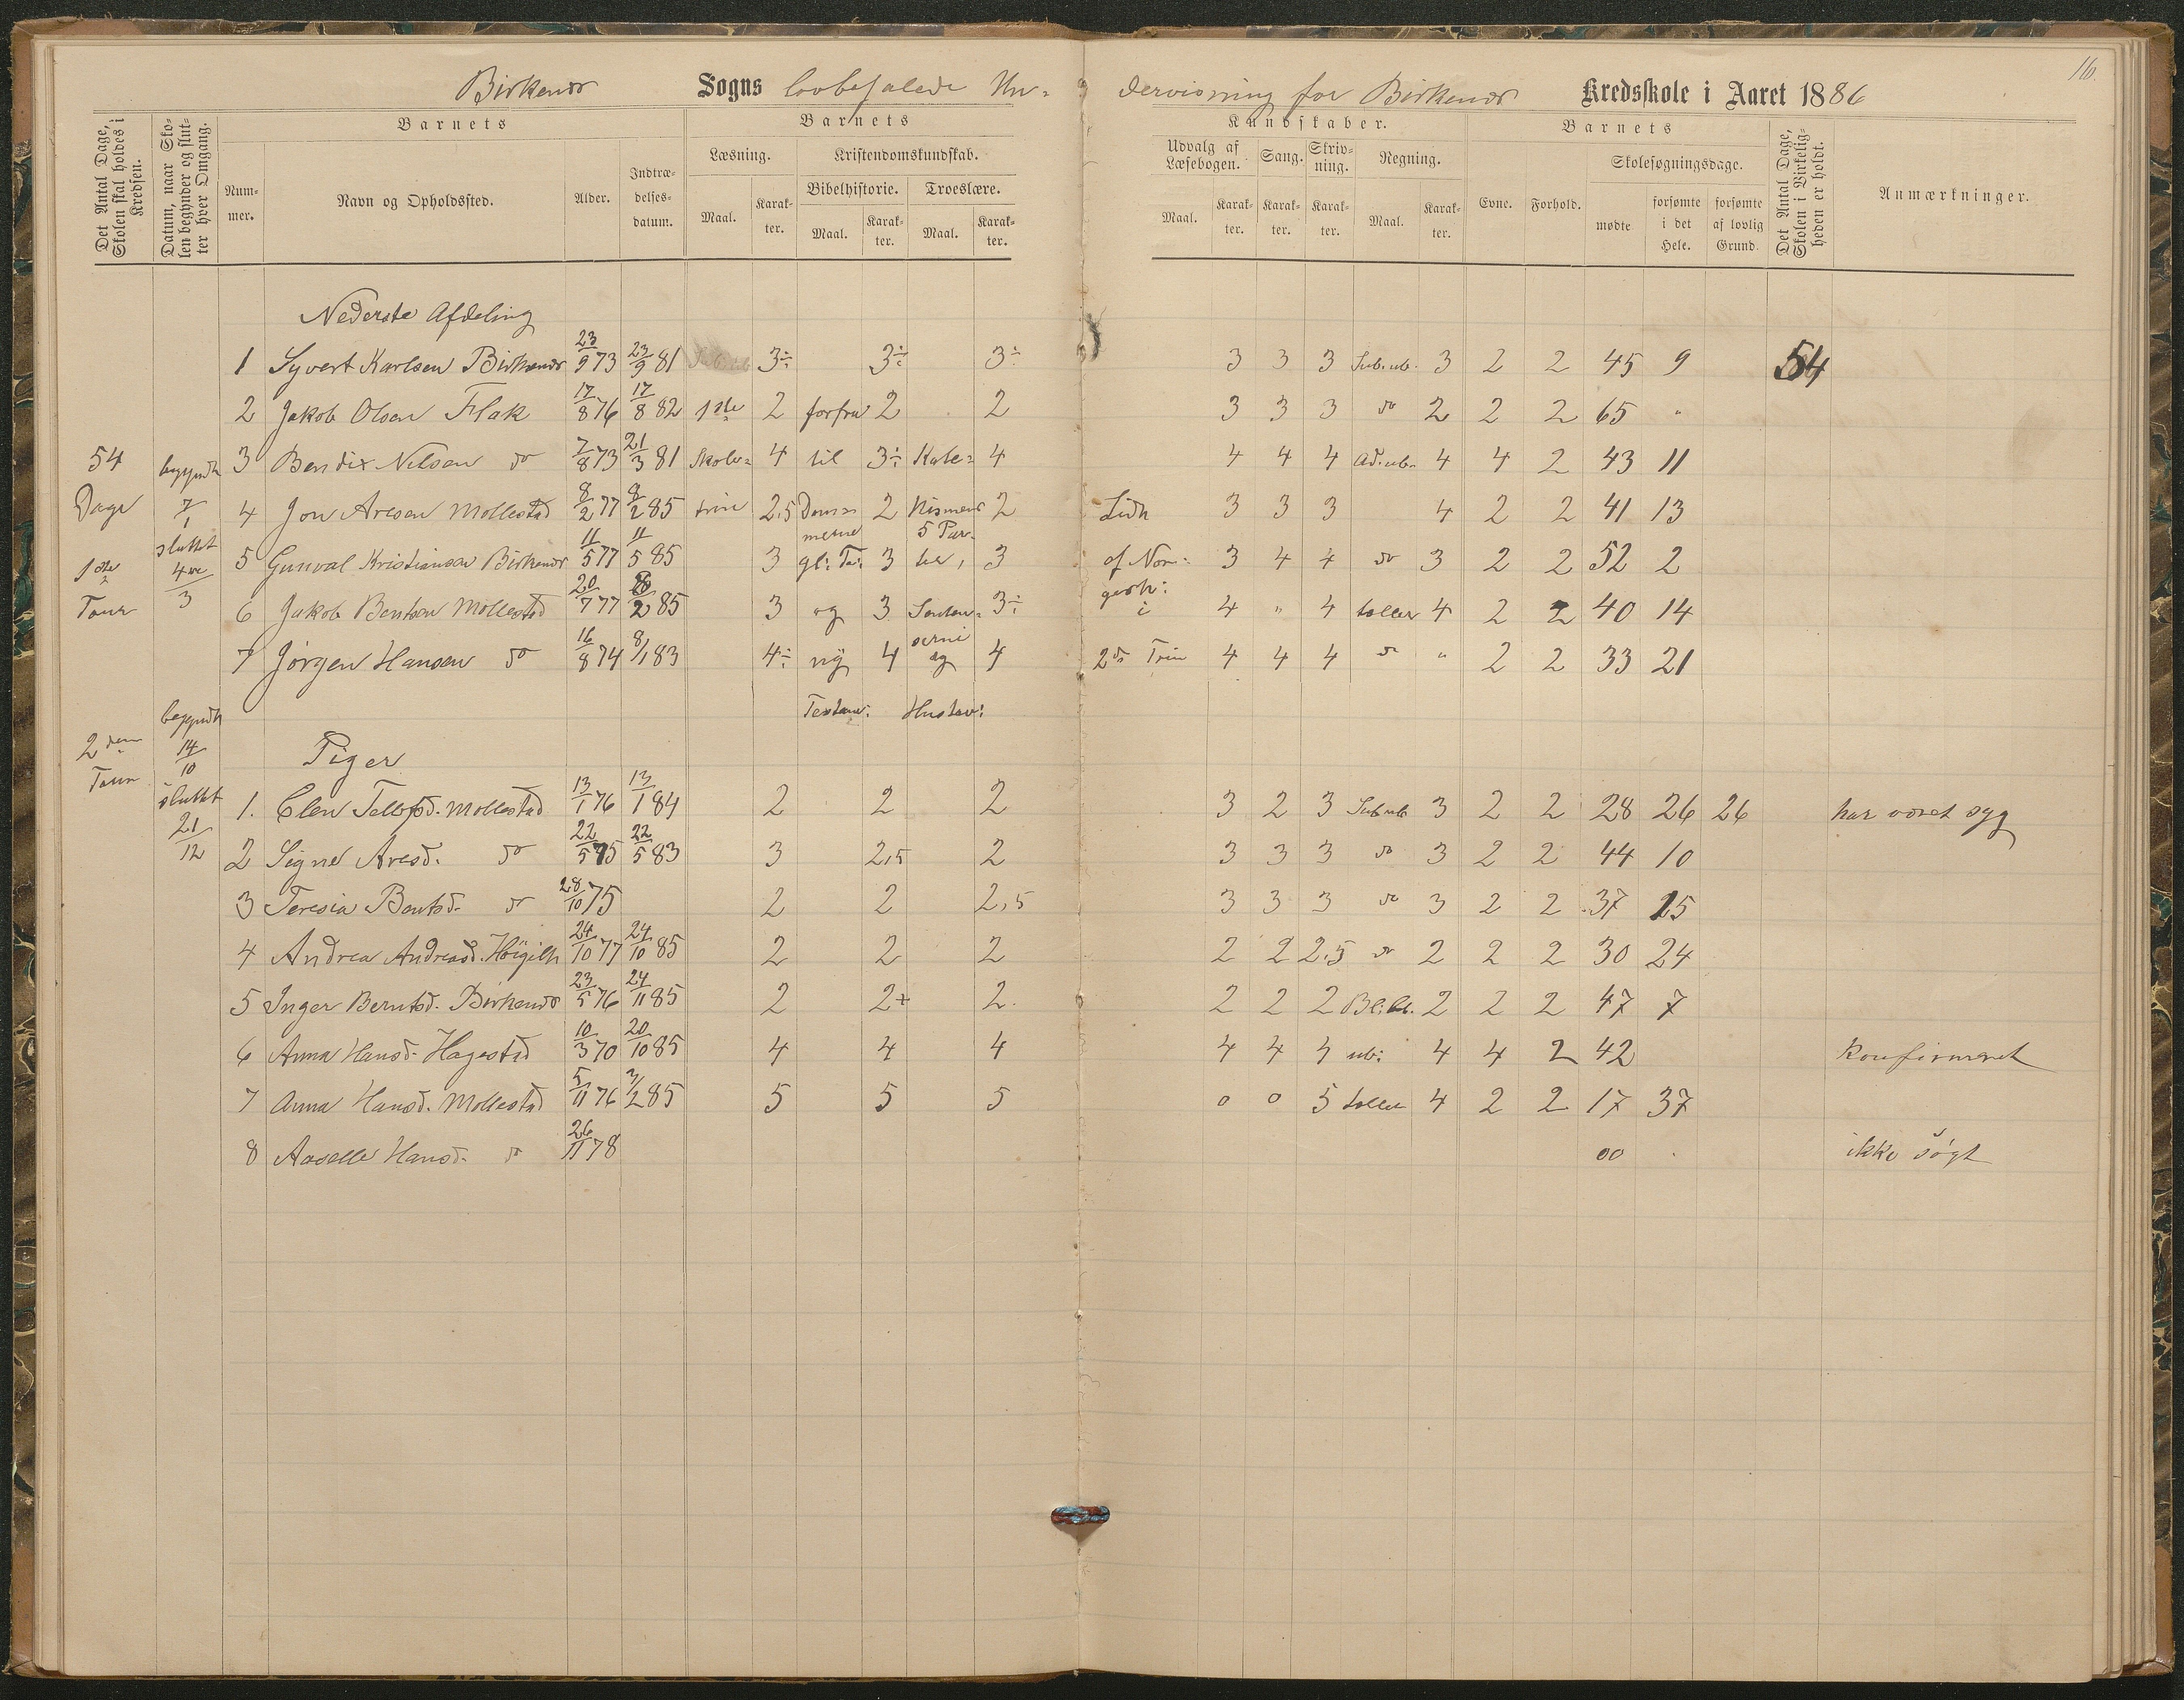 16
Birkenes Sogns lovbefalede Un-
dervisning for Birkenes Kredsskole i Aaret 1886
Det Antal Dage, Skolen skal holdes i Kredsen.
Datum, naar Skolen begynder og slutter hver Omgang.
Barnets
Nummer.
Navn og Opholdssted.
Alder.
Indtrædelsesdatum.
Barnets
Læsning.
Maal.
Karakter.
Kristendomskundskab.
Bibelhistorie.
Maal.
Karakter.
Troeslære.
Maal.
Karakter.
Kundskaber.
Udvalg af Læsebogen.
Maal.
Karakter.
Sang.
Karakter.
Skrivning.
Karakter.
Regning.
Maal.
Karakter.
Barnets
Evne.
Forhold.
Skolesøgningsdage.
mødte
forsømte i det Hele.
forsømte af lovlig Grund.
Det Antal Dage, Skolen i Virkeligheden er holdt.
Anmærkninger.
Nederste Afdeling
1 Syvert Karlsen Birkenes 23/9 73 23/9 81 3÷ 3÷ 3÷ 3 3 3 Sub.ub. 3 2 2 45 9 54
2 Jakob Olsen Flak 17/8 76 17/8 82 1ste 2 forfra 2 2 3 3 3 do 2 2 2 65 "
54 begyndt 3 Bendix Nilsen do 7/8 73 21/3 81 Skole= 4 til 3÷ Kate= 4 4 4 4 Ad.ub. 4 4 2 43 11
Dage 7/1 4 Jon Aresen Mollestad 8/2 77 8/2 85 trin 2,5 Dom= 2 kismens 2 Lidt 3 3 3 4 2 2 41 13
sluttet merne 5 Par=
1ste 4de/3 5 Gunval Kristiansen Birkenes 11/5 77 11/5 85 3 gl: Te: 3 ter, 3 af Nor= 3 4 4 do 3 2 2 52 2
gesh:
Tour 6 Jakob Bentsen Mollestad 20/7 77 8/2 85 3 og 3 3÷ i 4 " 4 taller 4 2 2 40 14
7 Jørgen Hansen do 16/8 74 8/1 83 4÷ ny 4 og 4 2de Trin 4 4 4 do " 2 2 33 21
begyndt Testam: Hustav:
2den 14/10 Piger
Tour
sluttet 1. Elen Tellefsd. Mollestad 13/1 76 13/1 84 2 2 2 3 2 3 Sub.ub 3 2 2 28 26 26 har været syg
21/12 2 Signe Aresd. do 22/5 75 22/5 83 3 2,5 2 3 3 3 do 3 2 2 44 10
3 Teresia Bentsd. do 28/10 75 2 2 2,5 3 3 3 do 3 2 2 37 15
4 Andrea Andreasd. Høigilt 24/10 77 24/10 85 2 2 2 2 2 2,5 do 2 2 2 30 24
5 Inger Berntsd. Birkenes 23/5 76 24/11 85 2 2+ 2. 2 2 2 2 2 2 47 7
6 Anna Hansd. Hagestad 10/3 70 20/10 85 4 4 4 4 4 4 ub: 4 4 2 42 Konfirmeret
7 Anna Hansd. Mollestad 5/11 76 3/2 85 5 5 5 0 0 5 taller 4 2 2 17 37
8 Aaselle Hansd. do 26/11 78 00 . ikke søgt